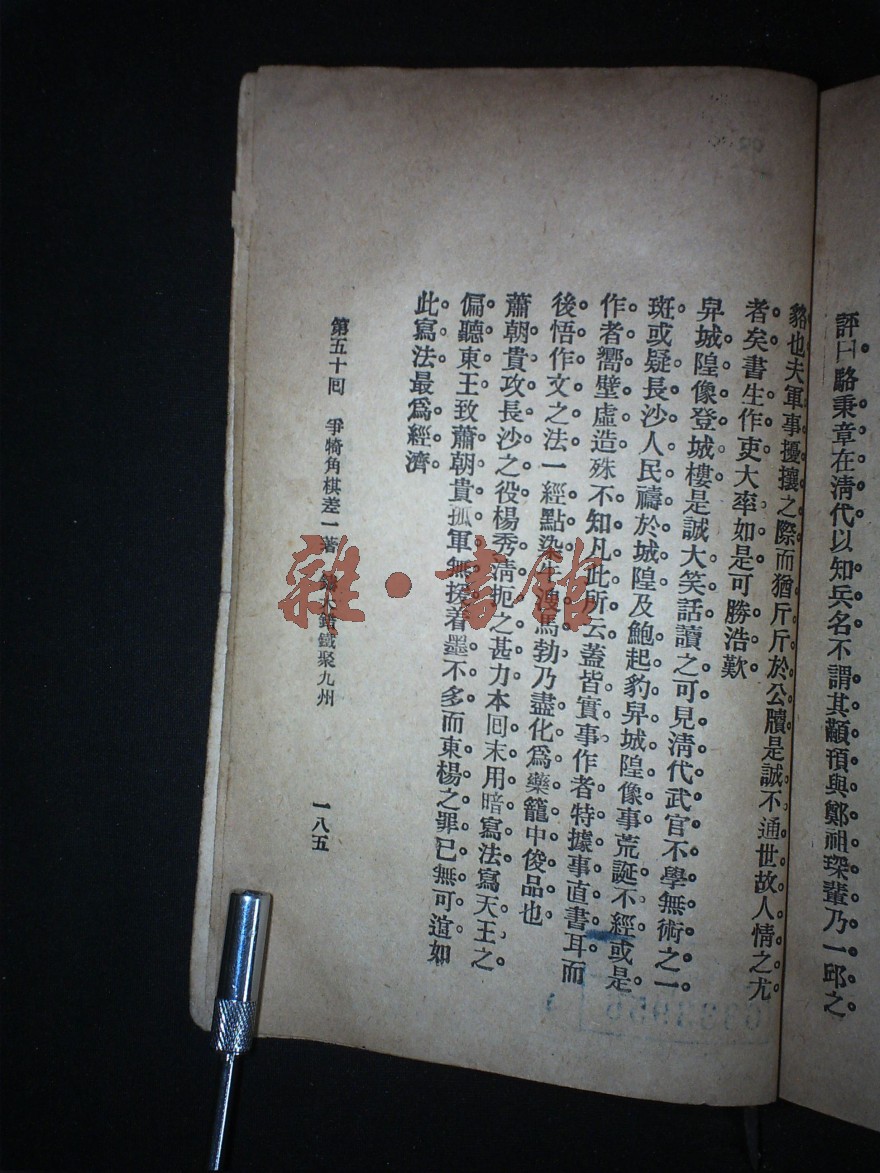 評曰駱秉章在清代以知兵名不謂其顢頇與鄭祖琛輩乃一邱之
貉也夫軍事擾攘之際而猶斤斤於公牘是誠不通世故人情之尤
者矣書生作吏大率如是可勝浩歎
舁城隍像登城樓是誠大笑話讀之可見清代武官不學無術之一
斑或疑長沙人民禱於城隍及鮑起豹舁城隍像事荒誕不經或是
作者嚮壁虛造殊不知凡此所云蓋皆實事作者特據事直書耳而
後悟作文之法一經點染牛溲馬勃乃盡化爲藥籠中俊品也
蕭朝貴攻長沙之役楊秀清扼之甚力本回末用暗寫法寫天王之
偏聽東王致蕭朝貴孤軍無援着墨不多而東楊之罪已無可逭如
此寫法最爲經濟
第五十回 爭犄角棋差一著 錯鐵聚九州
一八五
雜·書館